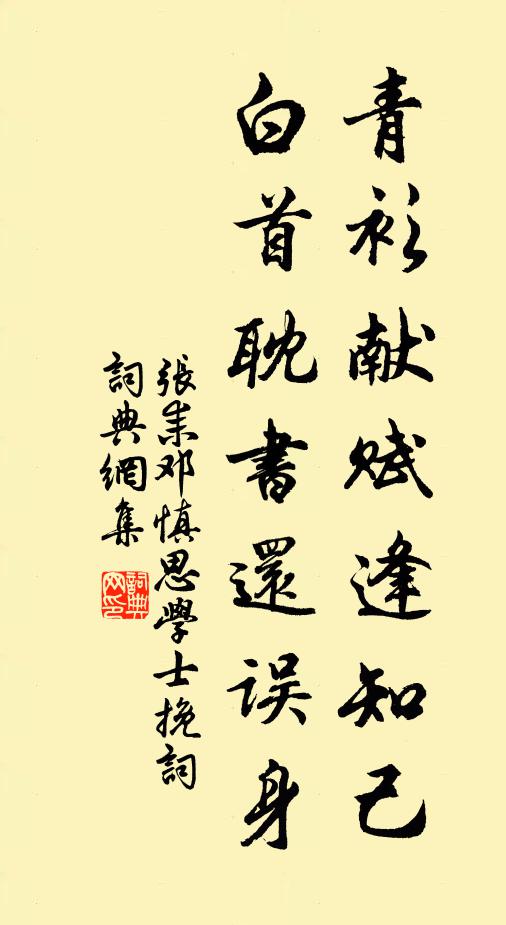 青衫献赋逢知己
白首耽書還误身
張耒邓慎思學士挽詞
詞典網集
詞典网印